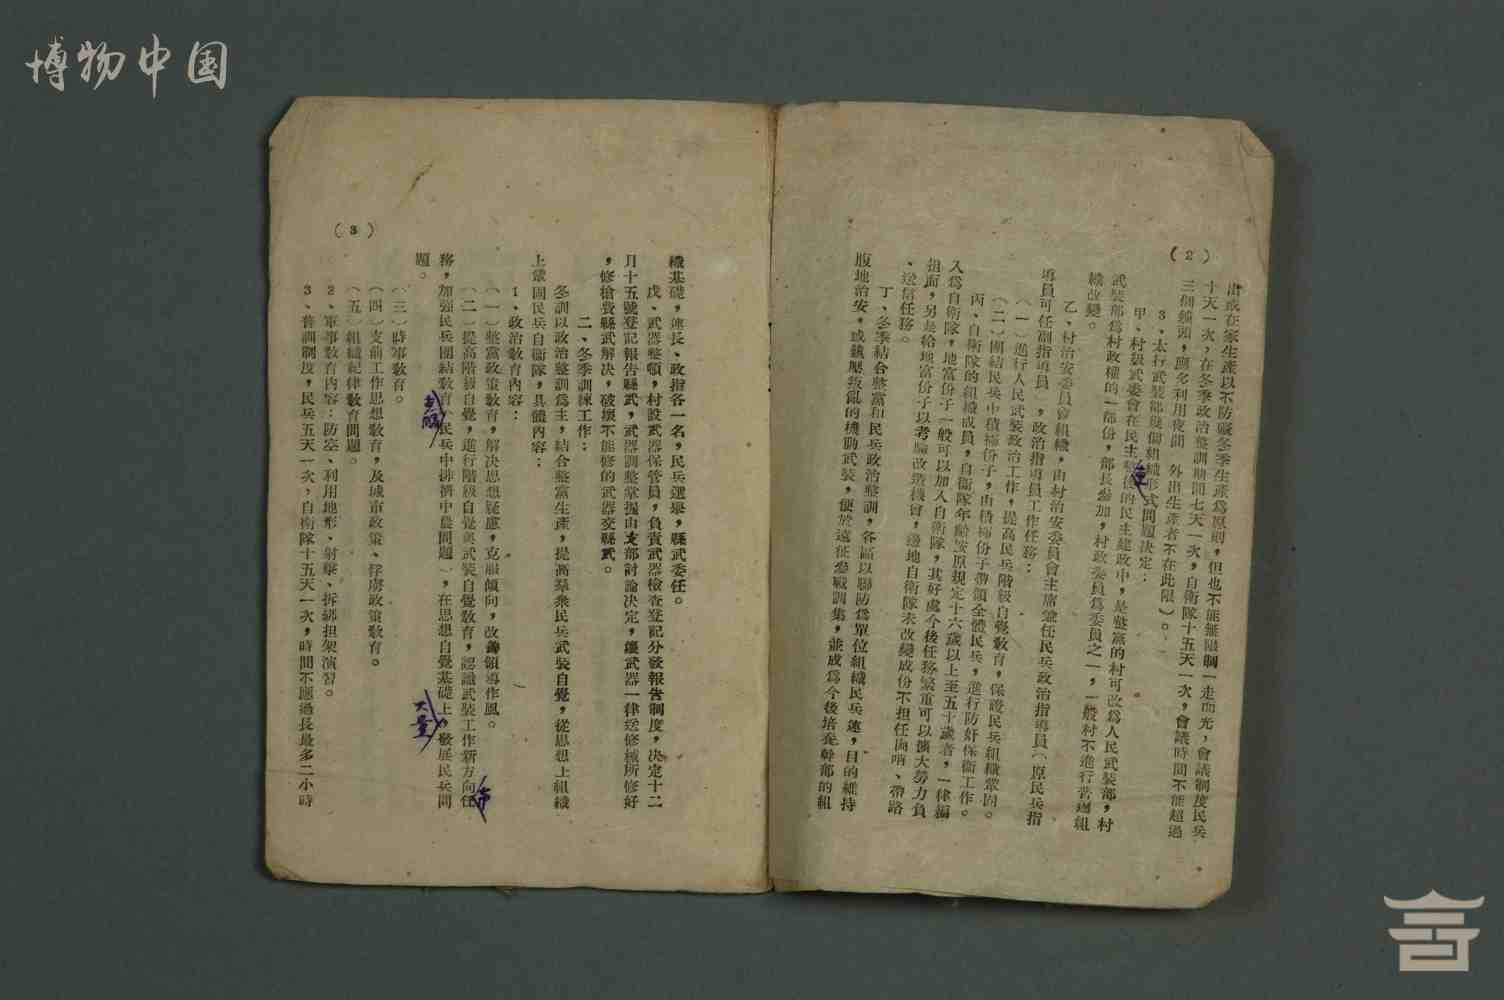 博物中国
(2)
清或在家生產以不防礙冬季生產爲原則，但也不能無限制一走而光，會議制度民兵
十天一次，在冬季政治整訓期間七天一次，自衛隊十五天一次，會議時間不能超過
三個鐘頭，應多利用夜間　外出生產者不在此限）。
3、太行武裝部幾個組織形式問題決定：
甲、村級武委會在民主後的民主建政中，是整黨的村可改爲人民武裝部，村
武裝部爲村政權的一部份，部長參加，村政委員爲委員之一，一般村不進行普遍組
織改變。
乙、村治安委員會組織，由村治安委員會主席兼任民兵政治指導員（原民兵指
導員可任副指導員），政治指導員工作任務：
（一）進行人民武裝政治工作，提高民兵階級自覺教育，保證民兵組織鞏固。
（二）團結民兵中積極份子，由積極份子帶領全體民兵，進行防奸保衛工作。
丙、自衛隊的組織成員，自衛隊年齡按原規定十六歲以上至五十歲者，一律編
入爲自衛隊，地富份子一般可以加入自衛隊，其好處今後任務繁重可以擴大勞力負
担面，另是給地富份子以考驗改造機會，邊地自衛隊未改變成份不担任崗哨、帶路
、送信任務。
丁、冬季結合整黨和民兵政治整訓，各區以聯防爲單位組織民兵連，目的維持
腹地治安，或鎮壓叛亂的機動武裝，便於遠征參戰調集，兼成爲今後培養幹部的組
(3)
織基礎，連長、政指各一名，民兵選舉，縣武委任。
戊、武器整頓，村設武器保管員，負責武器檢查登記分發報告制度，決定十二
月十五號登記報告縣武，武器調整掌握由支部討論决定，壞武器一律送修械所修好
，修槍費縣武解决，破壞不能修的武器交縣武。
二、冬季訓練工作：
冬訓以政治整訓爲主，結合整黨生產，提高羣衆民兵武裝自覺，從思想上組織
上鞏固民兵自衛隊，具體內容：
1、政治教育內容：
（一）整黨政策教育，解决思想疑慮，克服傾向，改善領導作風。
（二）提高階級自覺，進行階級自覺與武裝自覺教育，認識武裝工作新方向任
務，加強民兵團結教育（民兵中排擠中農問題），在思想自覺基礎上，發展民兵問
題。
（三）時事教育。
（四）支前工作思想教育，及城市政策、俘虜政策教育。
（五）組織紀律教育問題。
2、軍事教育內容：防空、利用地形、射擊、拆綁担架演習。
3、普訓制度，民兵五天一次，自衛隊十五天一次，時間不應過長最多二小時
大量